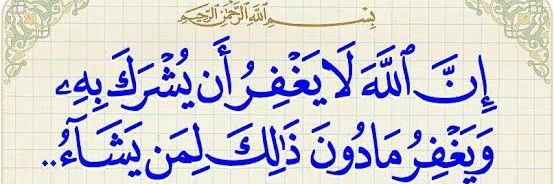 بِسْمِ اللَّهِ الرَّحْمَٰنِ الرَّحِيمِ
إِنَّ ٱللَّهَ لَا يَغْفِرُ أَن يُشْرَكَ بِهِۦ
وَيَغْفِرُ مَا دُونَ ذَٰلِكَ لِمَن يَشَآءُ..